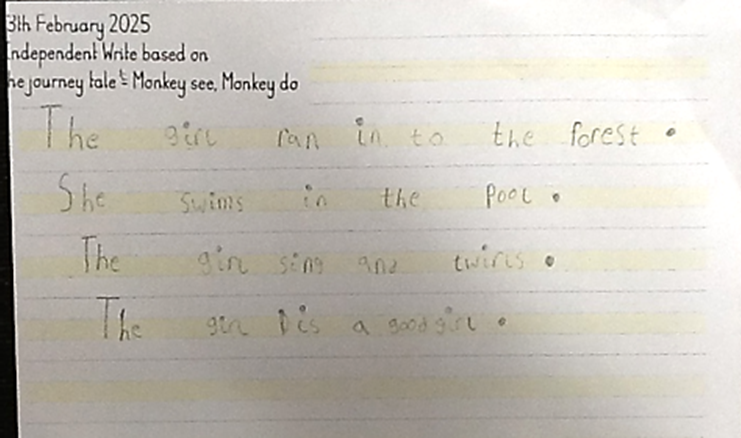 3th February 2025
Independent Write based on
he journey tale - Monkey see, Monkey do
The girl ran in to the forest.
She swims in the pool.
The girl sing and twirls.
The girl is a good girl.